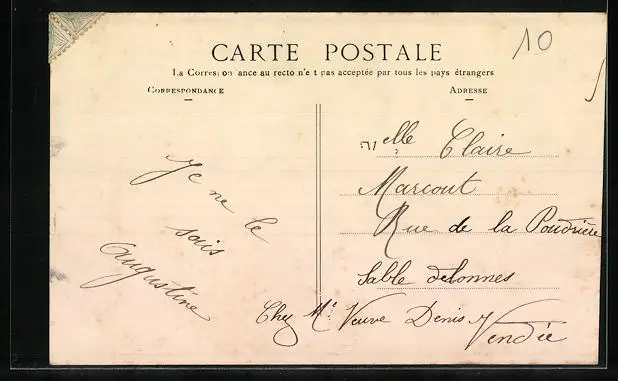 CARTE POSTALE
La Correspondance au recto n'est pas acceptée par tous les pays étrangers
CORRESPONDANCE
ADRESSE
10
Je ne le
sais
Augustine
Melle Claire
Marcout
Rue de la Poudrière
Sable delonnes
Chez Me Veuve Denis
Vendée